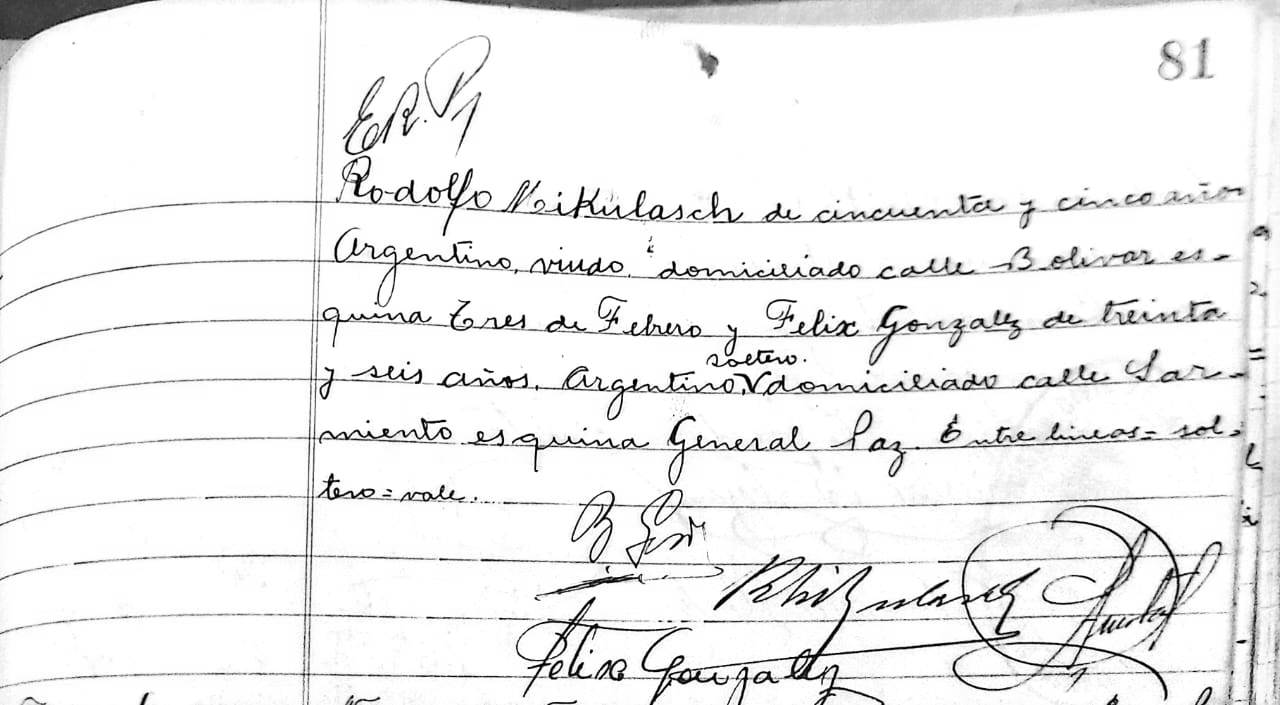 81
E.R.P.
Rodolfo Nikulasch de cincuenta y cinco años
Argentino, viudo, domiciliado calle Bolivar es-
quina Tres de Febrero y Felix Gonzalez de treinta
soltero.
y seis años, Argentino, V domiciliado calle Sar-
miento esquina General Paz. Entre lineas = sol-
tero = vale.
Felix Gonzalez